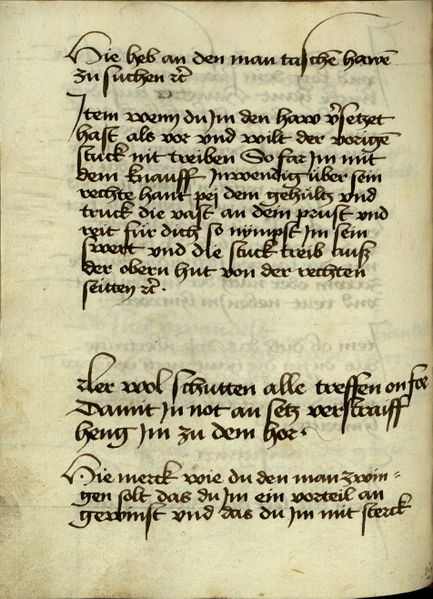 Hie heb an den man taschen hawen
zu suchen etc
Item wenn du Im den haw v'setzet
hast als vor vnd wilt der vorigen
stuck nit treiben So far Im mit
dem knauff Inwendig über sein
rechte hant pej dem gehültz vnd
truck die vast an dein prust vnd
reit für dich so nympst Im sein
swert vnd die stuck treib auß
der obern hut von der rechten
seitten etc.
Wer wol schutten alle treffen on far
Damit In not an setz verstraiff
heng Im zu dem hor.
Hie merck wie du den man zwin=
gen solt das du Im ein vorteil an
gewinst vnd das du Im mit sterck